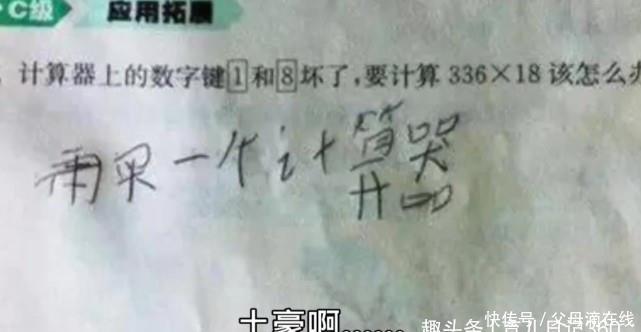 C级 应用拓展
计算器上的数字键1和8坏了,要计算336×18该怎么办
再买一个计算器
土豪啊......
快传号/父母派在线